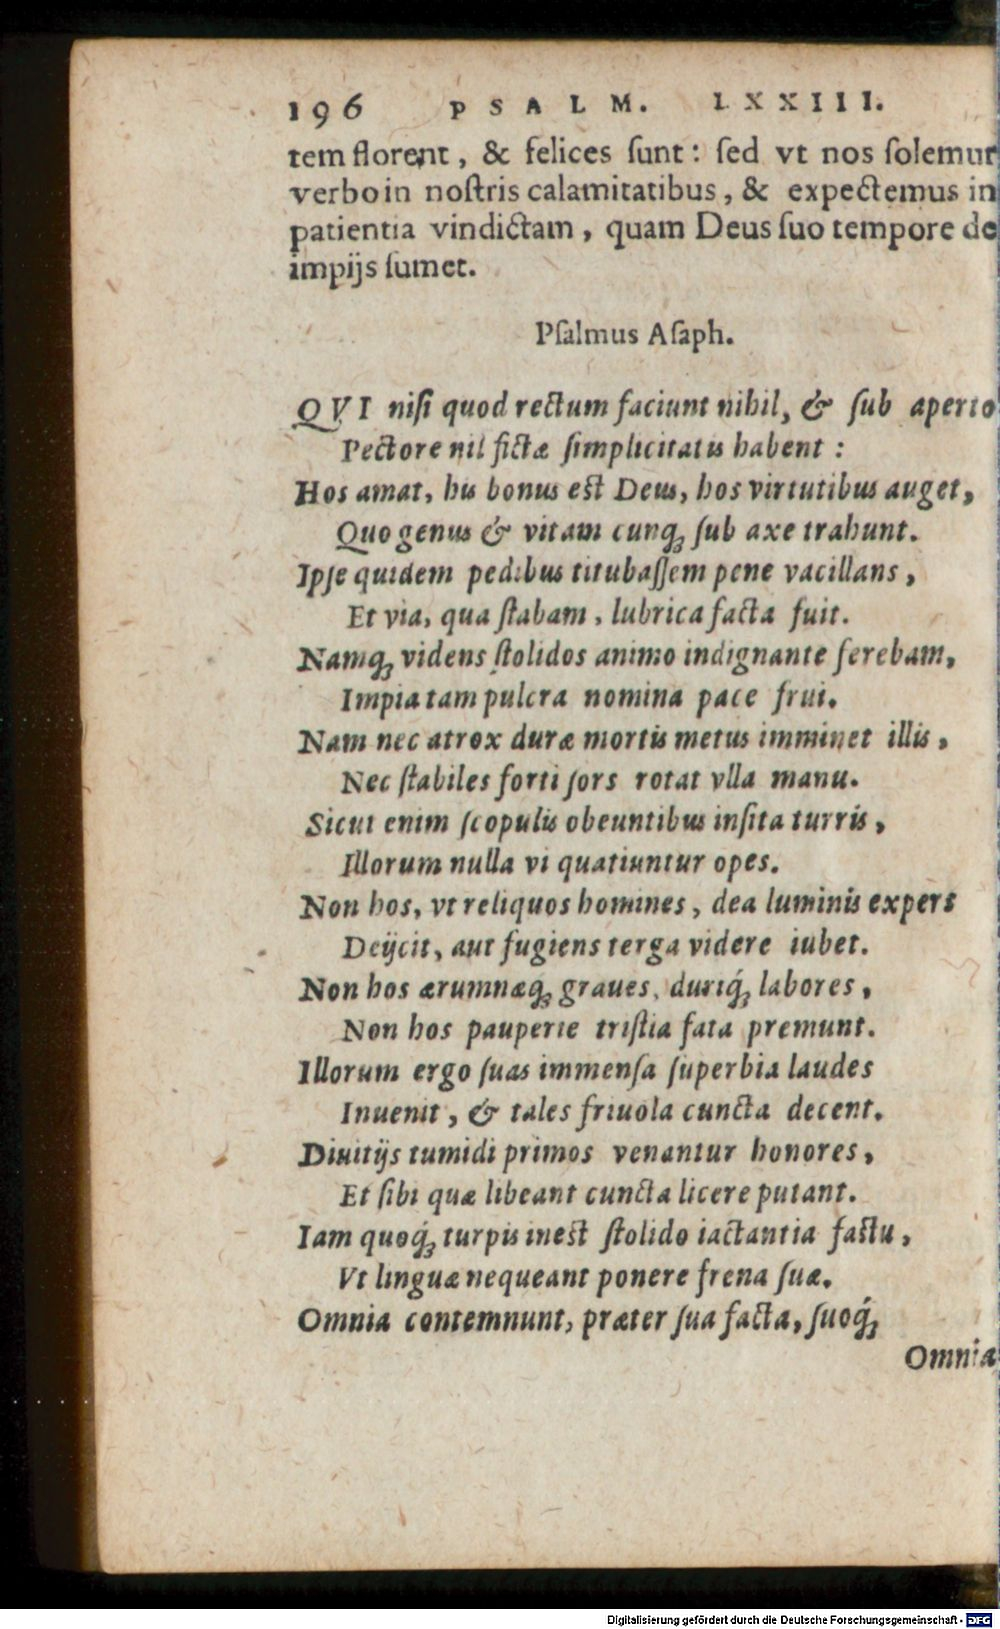 196 PSALM. LXXIII.
tem florent, & felices ſunt: ſed vt nos ſolemur
verbo in noſtris calamitatibus, & expectemus in
patientia vindictam, quam Deus ſuo tempore de
impijs ſumet.
Pſalmus Aſaph.
QVI niſi quod rectum faciunt nihil, & ſub aperto
Pectore nil fictæ ſimplicitatis habent:
Hos amat, his bonus eſt Deus, hos virtutibus auget,
Quo genus & vitam cunq; ſub axe trahunt.
Ipſe quidem pedibus titubaſſem pene vacillans,
Et via, qua ſtabam, lubrica facta fuit.
Namq; videns ſtolidos animo indignante ferebam,
Impia tam pulcra nomina pace frui.
Nam nec atrox duræ mortis metus imminet illis,
Nec ſtabiles forti ſors rotat vlla manu.
Sicut enim ſcopulis obeuntibus inſita turris,
Illorum nulla vi quatiuntur opes.
Non hos, vt reliquos homines, dea luminis expers
Deijcit, aut fugiens terga videre iubet.
Non hos ærumnæq; graues, duriq́; labores,
Non hos pauperie triſtia fata premunt.
Illorum ergo ſuas immenſa ſuperbia laudes
Inuenit, & tales friuola cuncta decent.
Diuitijs tumidi primos venantur honores,
Et ſibi quæ libeant cuncta licere putant.
Iam quoq́; turpis ineſt ſtolido iactantia faſtu,
Vt linguæ nequeant ponere frena ſuæ.
Omnia contemnunt, præter ſua facta, ſuoq́;
Omnia
Digitalisierung gefördert durch die Deutsche Forschungsgemeinschaft - DFG